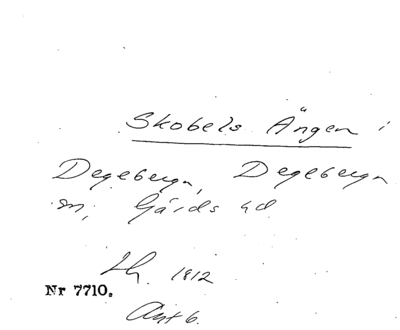 Skobels Ängen i
Degeberga, Degeberga
sn, Gärds hd
Lh. 1812
Nr 7710.
Akt 6.